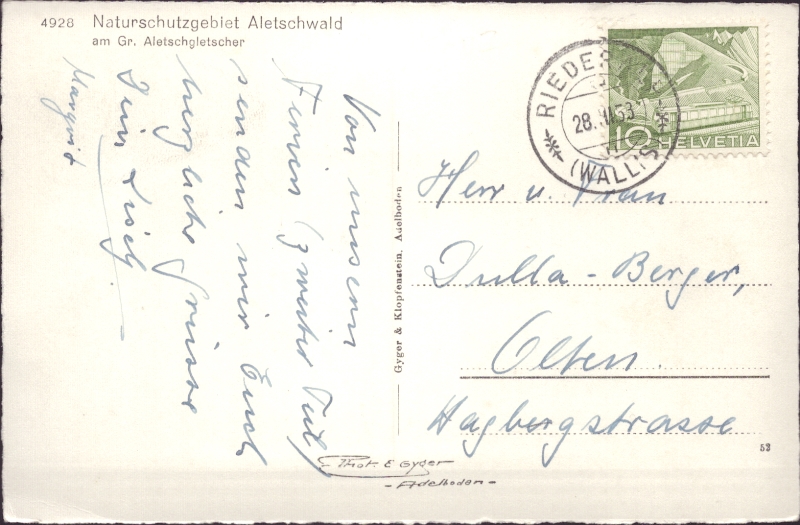 4928 Naturschutzgebiet Aletschwald
am Gr. Aletschgletscher
Von unsern
Ferien (zweiter Teil)
senden wir Euch
herzliche Grüsse
Lisely
Margrit
Gyger & Klopfenstein, Adelboden
RIEDER
28.
53
(WALLIS)
10 HELVETIA
Herr u. Frau
Dulla-Berger,
Olten.
Hagbergstrasse
53
Phot. E Gyger
- Adelboden -